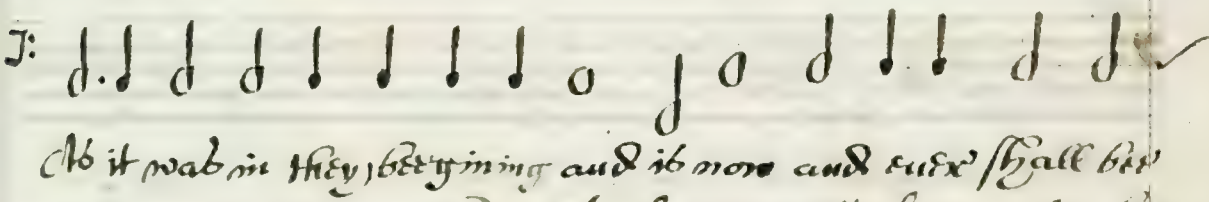 J:
As it was in they begining and is now and euer shall bee